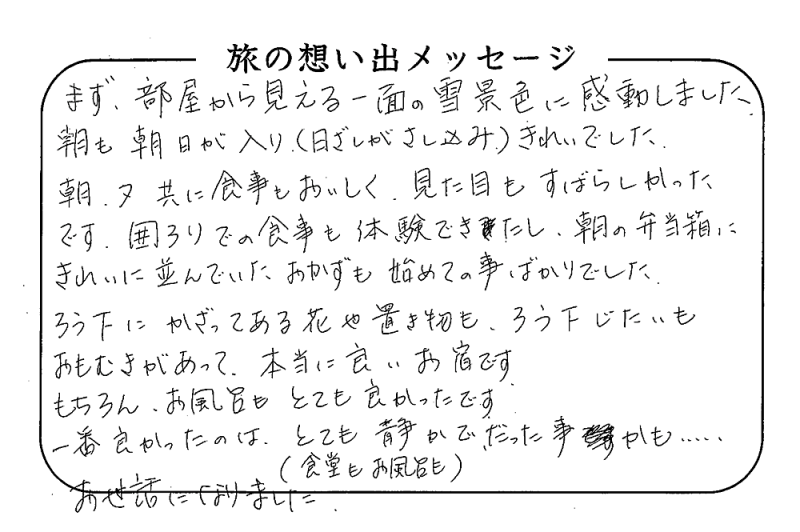 旅の想い出メッセージ
まず、部屋から見える一面の雪景色に感動しました。
朝も朝日が入り、(日ざしがさし込み)きれいでした。
朝、夕共に食事もおいしく、見た目もすばらしかった
です。囲ろりでの食事も体験できたし、朝の弁当箱に
きれいに並んでいたおかずも始めての事ばかりでした。
ろう下にかざってある花や置き物も、ろう下じたいも
おもむきがあって、本当に良いお宿です
もちろん、お風呂もとても良かったです
一番良かったのは、とても静かでだった事かも.....
(食堂もお風呂も)
お世話になりました。